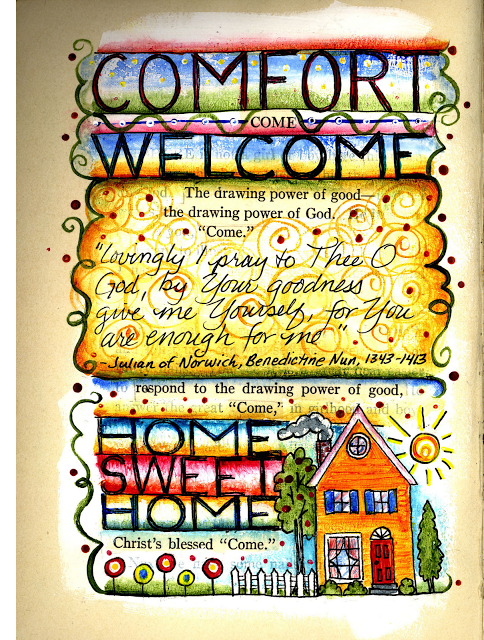 COMFORT
COME
WELCOME
The drawing power of good—
the drawing power of God.
"Come."
"Lovingly I pray to Thee O
God, by Your goodness
give me Yourself, for You
are enough for me"
-Julian of Norwich, Benedictine Nun, 1343-1413
to respond to the drawing power of good,
great "Come," in and
HOME
SWEET
HOME
Christ's blessed "Come."